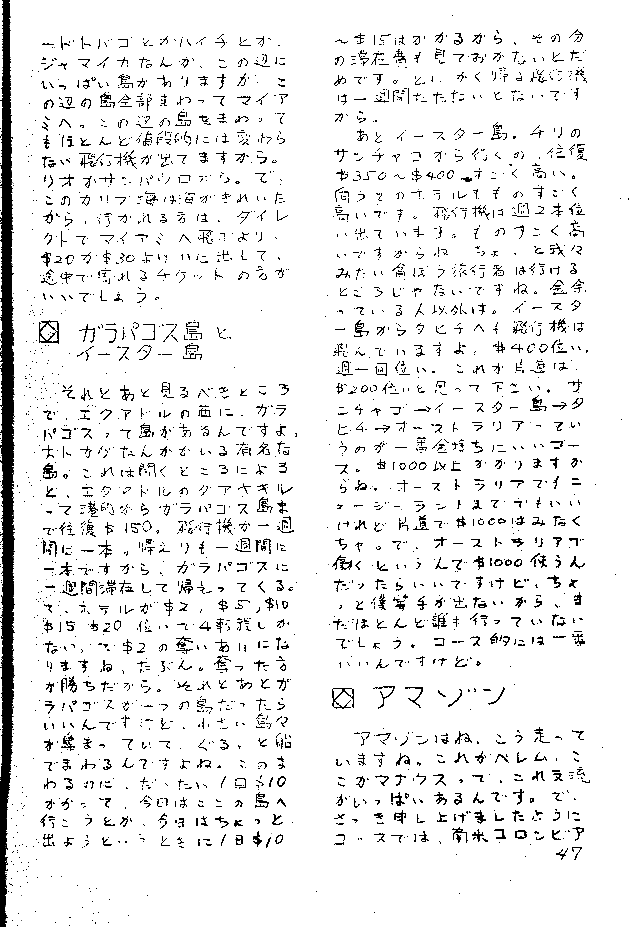 ードトバゴとかハイチとか、
ジャマイカなんか、この辺に
いっぱい島がありますが、こ
の辺の島全部まわってマイア
ミへ。この辺の島をまわって
もほとんど値段的には変わら
ない飛行機が出てますから。
リオかサンパウロから。で、
このカリブ海は海がきれいだ
から、行かれる方は、ダイレ
クトでマイアミへ飛ぶより、
$20か$30よけいに出して、
途中で寄れるチケットの方が
いいでしょう。
ガラパゴス島と
イースター島
それとあと見るべきところ
で、エクアドルの西に、ガラ
パゴスって島があるんですよ。
大トカゲなんかがいる有名な
島。これは聞くところによる
と、エクアドルのグアヤキル
って港町からガラパゴス島ま
で往復$150。飛行機が一週
間に一本。帰えりも一週間に
一本ですから、ガラパゴスに
一週間滞在して帰えってくる。
で、ホテルが$2、$5、$10
$15 $20 位いで4軒しか
ない。で$2の奪いあいにな
りますね、たぶん。奪った方
が勝ちだから。それとあとガ
ラパゴスが一つの島だったら
いいんですけど、小さい島々
が集まっていて、ぐるっと船
でまわるんですよね。このま
わるのに、だいたい1日$10
かかって、今日はここの島へ
行こうとか、今日はちょっと
出ようというときに1日$10
〜$15はかかるから、その分
の滞在費も見ておかないとだ
めです。とにかく帰る飛行機
は一週間たたないとないです
から。
あとイースター島。チリの
サンチャゴから行くの、往復
$350〜$400。すごく高い。
向うでのホテルもものすごく
高いです。飛行機は週2本位
い出ています。ものすごく高
いですからね ちょっと我々
みたい貧ぼう旅行者は行ける
ところじゃないですね。金余
っている人以外は。イースタ
ー島からタヒチへも飛行機は
飛んでいますよ。$400位い。
週一回位い。これが片道は、
$200位いと思って下さい。サ
ンチャゴ→イースター島→タ
ヒチ→オーストラリアってい
うのが一番金持ちにいいコー
ス。$1000以上かかりますか
らね。オーストラリアでもニ
ュージーランドまででもいい
けれど片道で$1000はみなく
ちゃ。で、オーストラリアで
働くというんで$1000使うん
だったらいいですけど、ちょ
っと後等手が出ないから、ま
だほとんど誰も行っていない
でしょう。コース的には一番
いいんですけど。
アマゾン
アマゾンはね、こう走って
いますね。これがベレム、こ
こがマナウスって、これ支流
がいっぱいあるんです。で、
さっき申し上げましたように
コースでは、南米コロンビア
47